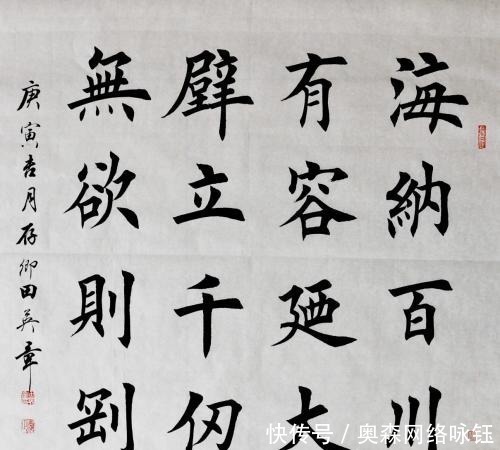 海納百川
有容廼大
壁立千仞
無欲則剛
庚寅吉月存卿田英章
快传号 / 奥森网络咏钰